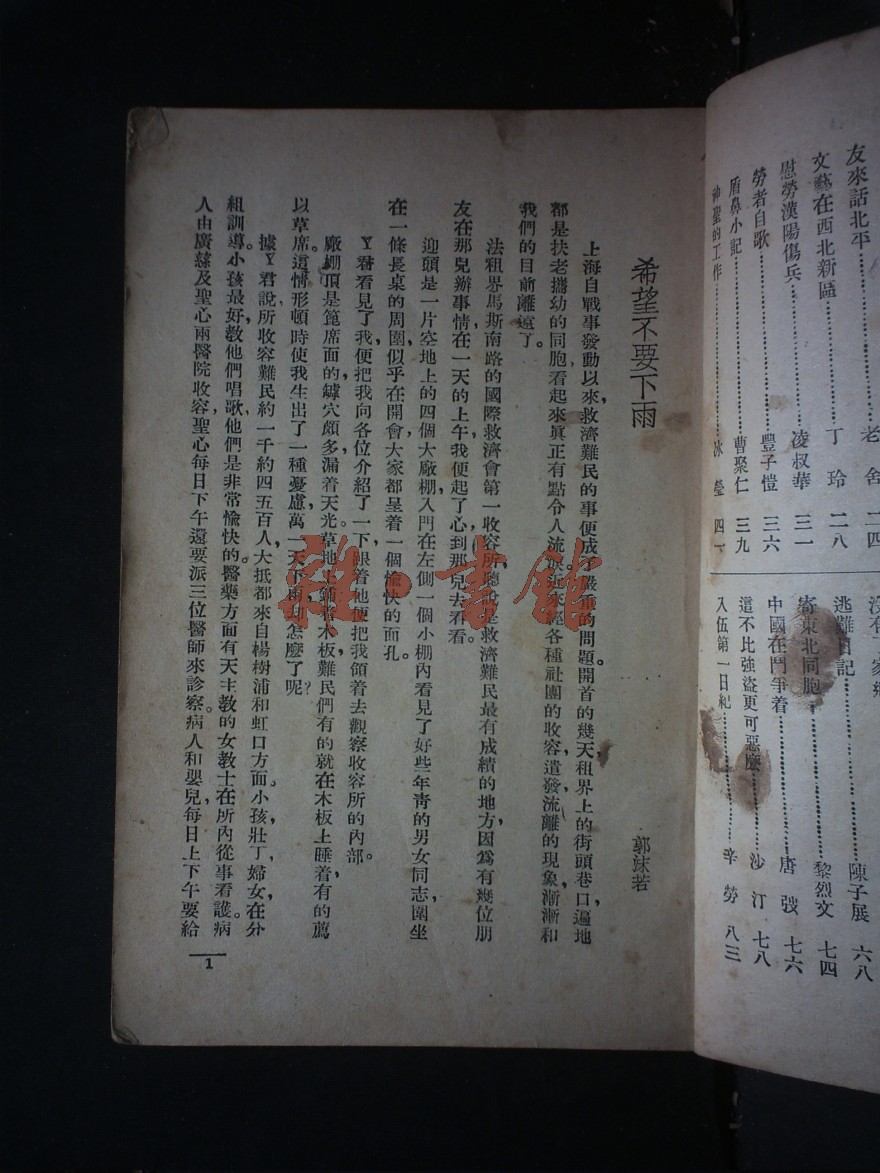 友來話北平……………老舍 二四
文藝在西北新區……………丁玲 二八
慰勞漢陽傷兵……………凌叔華 三一
勞者自歌……………豐子愷 三六
盾鼻小記……………曹聚仁 三九
神聖的工作……………冰瑩 四一
陳子展 六八
逃難日記……………黎烈文 七四
寄東北同胞……………唐弢 七六
中國在鬥爭着……………沙汀 七八
這不比強盜更可惡麼……………辛勞 八三
入伍第一日紀
希望不要下雨
郭沫若
上海自戰事發動以來，救濟難民的事便成了嚴重的問題。開首的幾天租界上的街頭巷口，遍地
都是扶老攜幼的同胞看起來眞正有點令人流淚。近來經各種社團的收容，遣發，流離的現象漸漸和
我們的目前離遠了。
法租界馬斯南路的國際救濟會第一收容所，聽說是救濟難民最有成績的地方，因爲有幾位朋
友在那兒辦事情，在一天的上午我便起了心到那兒去看看。
迎頭是一片空地上的四個大廠棚，入門在左側一個小棚內看見了好些年靑的男女同志圍坐
在一條長桌的周圍，似乎在開會，大家都呈着一個愉快的面孔。
Y君看見了我，便把我向各位介紹了一下，跟着他便把我領着去觀察收容所的內部。
廠棚頂是篦席面的，罅穴頗多，漏着天光。草地上鋪着木板，難民們有的就在木板上睡着，有的薦
以草席。這情形頓時使我生出了一種憂慮，萬一天下雨却怎麼了呢？
據Y君說，所收容難民約一千約四五百人，大抵都來自楊樹浦和虹口方面。小孩，壯丁，婦女，在分
組訓導。小孩最好，教他們唱歌，他們是非常愉快的。醫藥方面有天主教的女教士在所內從事看護。病
人由廣慈及聖心兩醫院收容，聖心每日下午還要派三位醫師來診察。病人和嬰兒，每日上下午要給
1
雜·書館